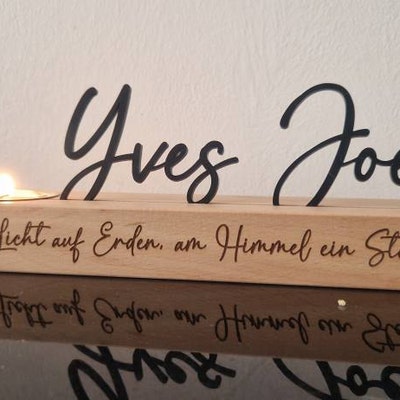 Yves Joe
Licht auf Erden, am Himmel ein Ste